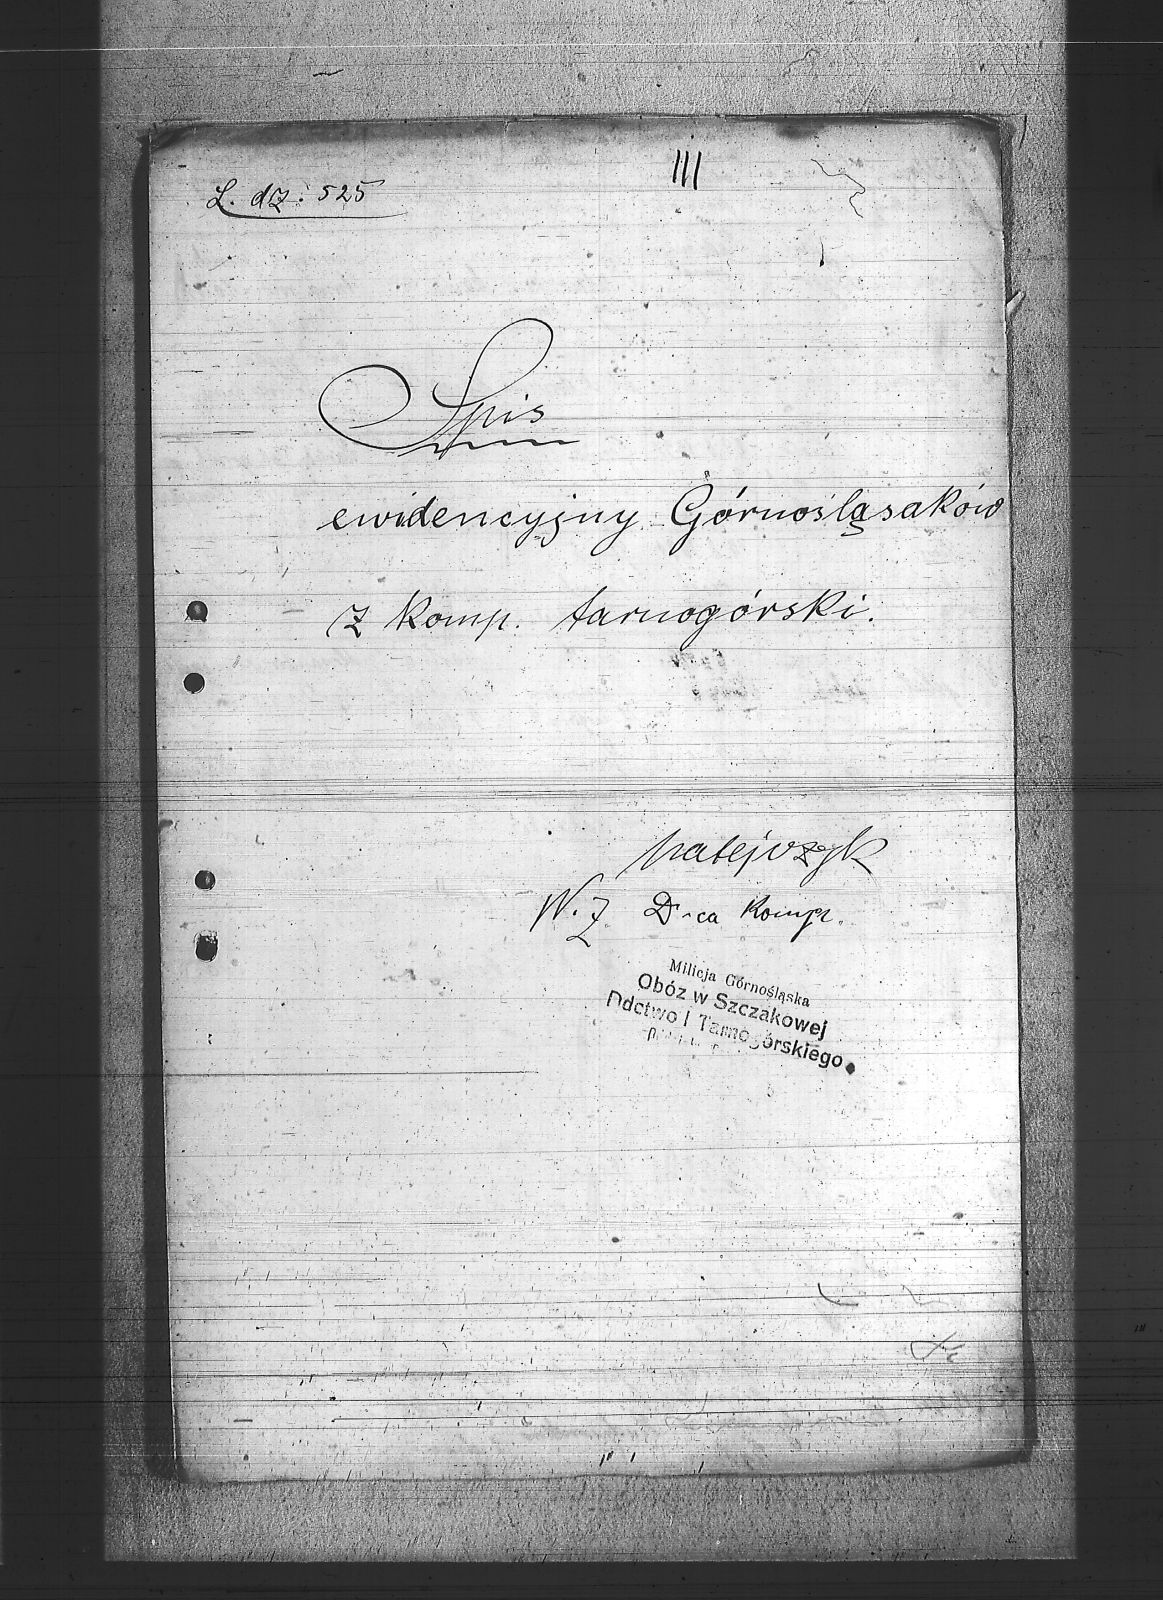 III
L. dz: 525
Spis
ewidencyjny Górnośląsaków
z komp. tarnogórski.
Matejczyk
W. Z. D-ca Komp.
Milicja Górnośląska
Obóz w Szczakowej
Ddctwo I Tarnogórskiego